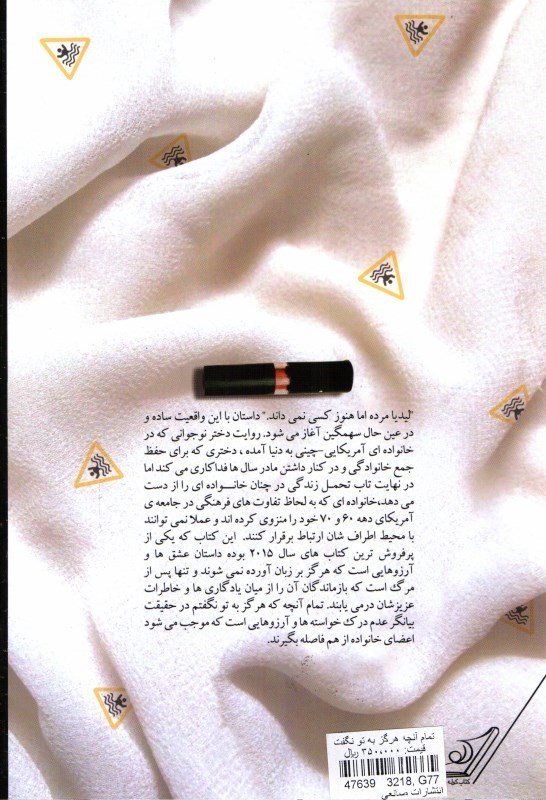 "لیدیا مرده اما هنوز کسی نمی داند." داستان با این واقعیت ساده و
در عین حال سهمگین آغاز می شود. روایت دختر نوجوانی که در
خانواده ای آمریکایی-چینی به دنیا آمده ، دختری که برای حفظ
جمع خانوادگی و در کنار داشتن مادر سال ها فداکاری می کند اما
در نهایت تاب تحمـل زندگی در چنان خانـــواده ای را از دست
می دهد،خانواده ای که به لحاظ تفاوت های فرهنگی در جامعه ی
آمریکای دهه ۶۰ و ۷۰ خود را منزوی کرده اند و عملا نمی توانند
با محیط اطراف شان ارتباط برقرار کنند. این کتاب که یکی از
پرفروش ترین کتاب های سال ۲۰۱۵ بوده داستان عشق ها و
آرزوهایی است که هرگز بر زبان آورده نمی شوند و تنها پس از
مرگ است که بازماندگان آن را از میان یادگاری ها و خاطرات
عزیزشان درمی یابند. تمام آنچه که هرگز به تو نگفتم در حقیقت
بیانگر عدم درک خواسته ها و آرزوهایی است که موجب می شود
اعضای خانواده از هم فاصله بگیرند.
تمام آنچه هرگز به تو نگفت
قیمت: ۳۵۰،۰۰۰ ریال
47639 3218, G77
انتشارات صانعی
کتاب کوله